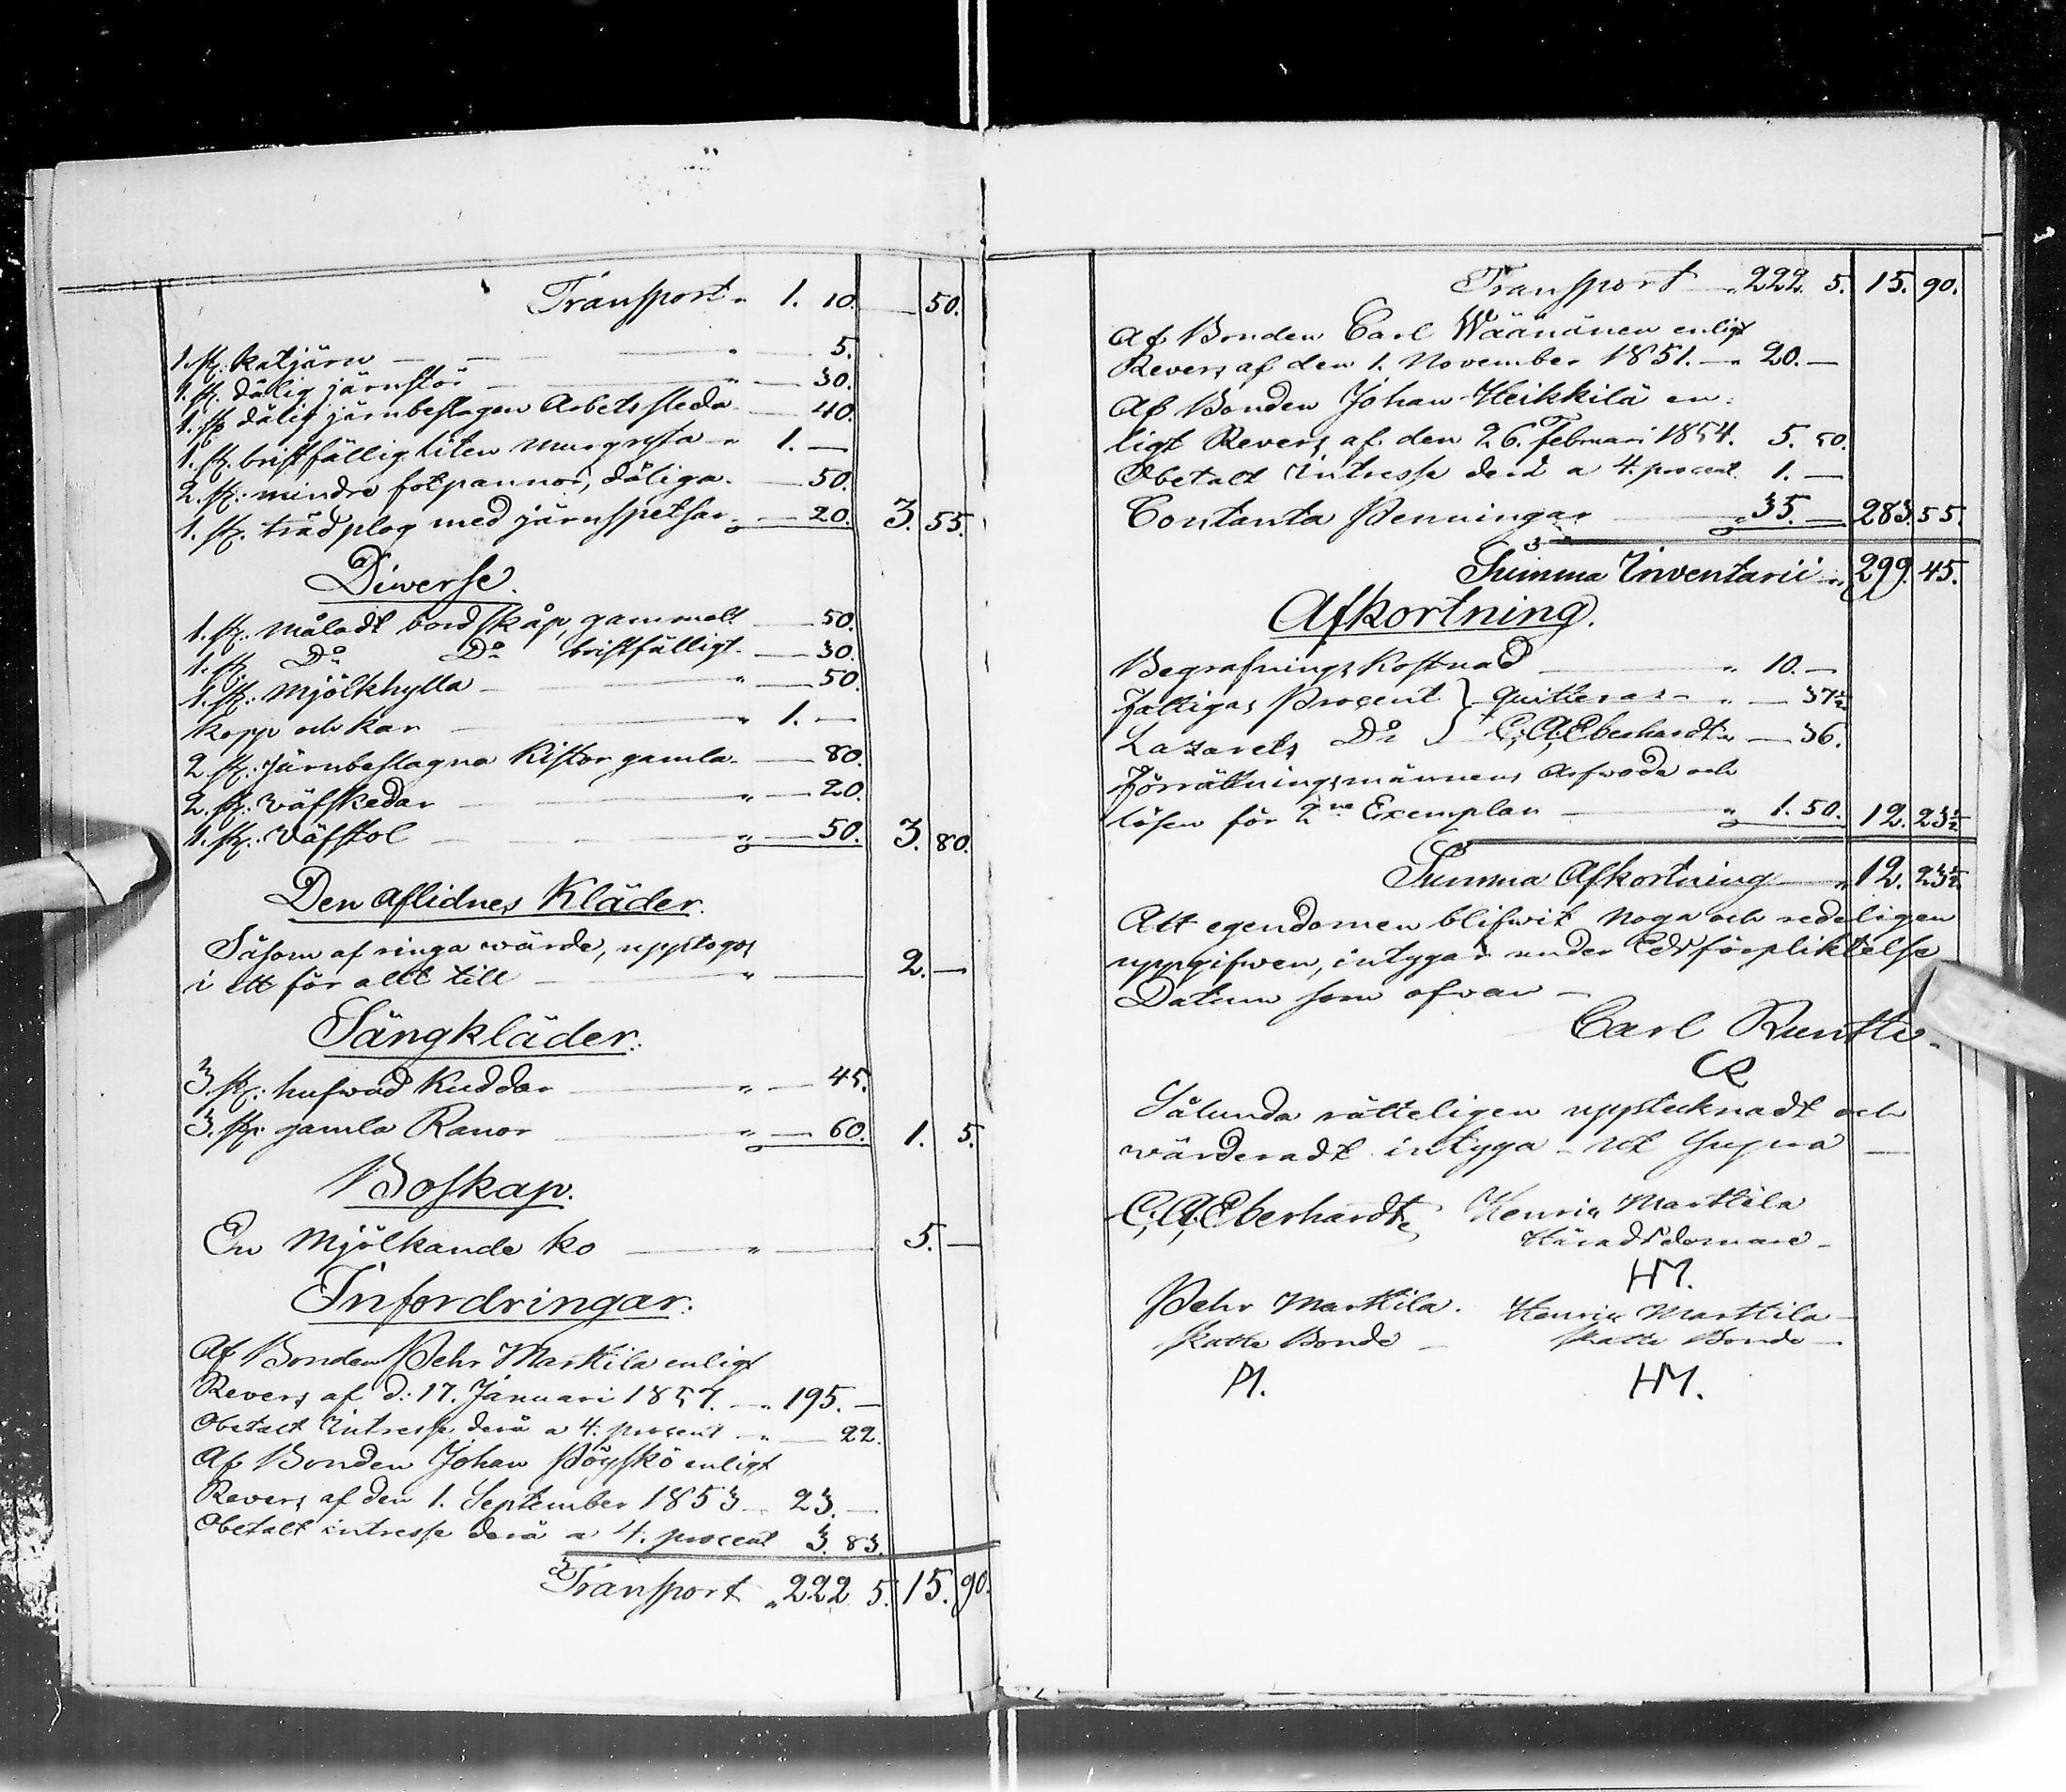 Transport „ 1. 10. — 50.
1. st. katjärn — — „ — 5.
1. st. dålig järnstör — „ — 30.
1. st. dålig järnbeslagen Arbetssleda — 40.
1. st. bristfällig liten murgryta „ 1. —
2. st. mindre fotpannor, dåliga. — 50.
1. st. träd plog med järnspetsar „ — 20. 3. 55.
Diverse.
1. st. måladt bordskåp, gammalt — 50.
1. st. Do Do bristfälligt — 30.
1. st. Mjölkhylla — „ — 50.
kopp och kar — „ 1. —
2. st. järnbeslagna Kistor gamla — 80.
2. st. väfskedar — „ — 20.
1. st. Väfstol — „ — 50. 3. 80.
Den Aflidnes Kläder.
Såsom af ringa wärde, upptogos
i ett för allt till — „ — 2. —
Sängkläder.
3. st. hufwud Kuddar — „ — 45.
3. st. gamla Ranor — „ — 60. 1. 5.
Boskap.
En Mjölkande ko — „ — 5. —
Infordringar.
Af Bonden Pehr Marttila enligt
Revers af d: 17. Januari 1857. — „ 195. —
Obetalt Intresse derå a 4. procent — „ — 22.
Af Bonden Johan Pöyskö enligt
Revers af den 1. September 1853 — 23. —
Obetalt intresse derå a 4. procent 3. 83.
Transport „ 222 5. 15. 90.
Transport — „ 222. 5. 15. 90.
Af Bonden Carl Wäänänen enligt
Revers af den 1. November 1851. — „ 20. —
Af Bonden Johan Heikkilä en:
ligt Revers af den 26. Februari 1854. 5. 50.
Obetalt Intresse derå a 4. procent 1. —
Contanta Penningar — „ 35. — 283. 55.
Summa Inventarii „ 299. 45.
Afkortning.
Begrafnings Kostnad — „ 10. —
Fattigas Procent } quitteras — „ — 37½
Lazarets Do } C. A. Eberhardt „ — 36.
Förrättningsmännens Arfwode och
lösen för 2ne Exemplar — „ 1. 50. 12. 23½
Summa Afkortning — „ 12. 23½
Att egendomen blifwit noga och redeligen
uppgifwen, intygar under Edsförpliktelse
Datum som ofwan —
Carl Runtti.
CR
Sålunda rätteligen upptecknadt och
wärderadt intyga — ut Supra —
C. A. Eberhardt Henric Marttila
Häradsdomare —
HM.
Pehr Marttila. Henric Marttila —
Skatte Bonde — Skatte Bonde —
PM. HM.